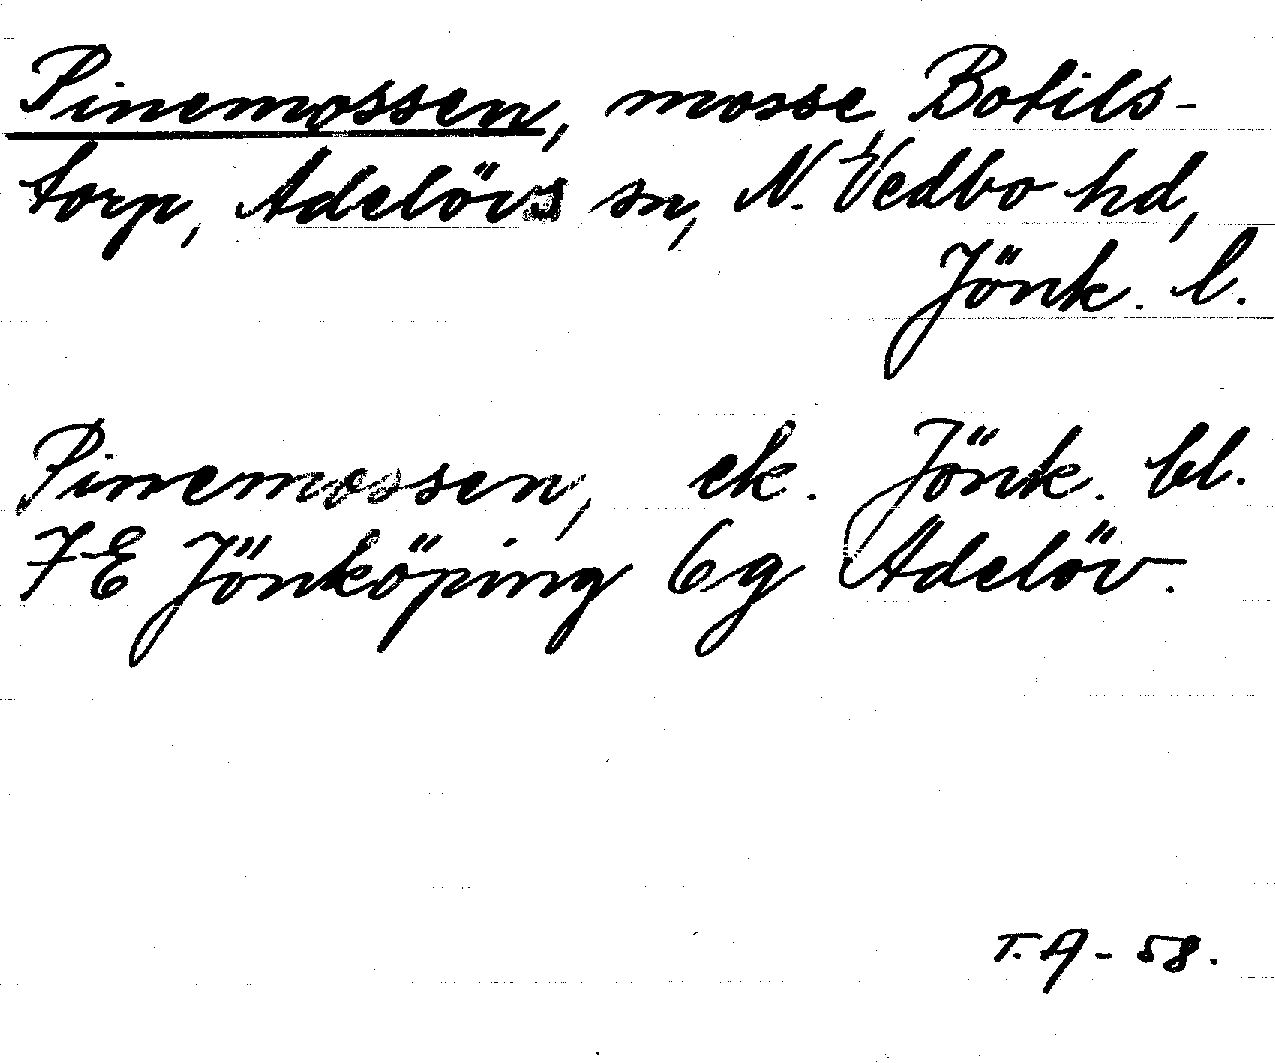 Pinemossen, mosse, Botils-
torp, Adelövs sn, N. Vedbo hd,
Jönk. l.
Pinemossen, ek. Jönk. bl.
7E Jönköping 6g Adelöv.
T.A - 58.